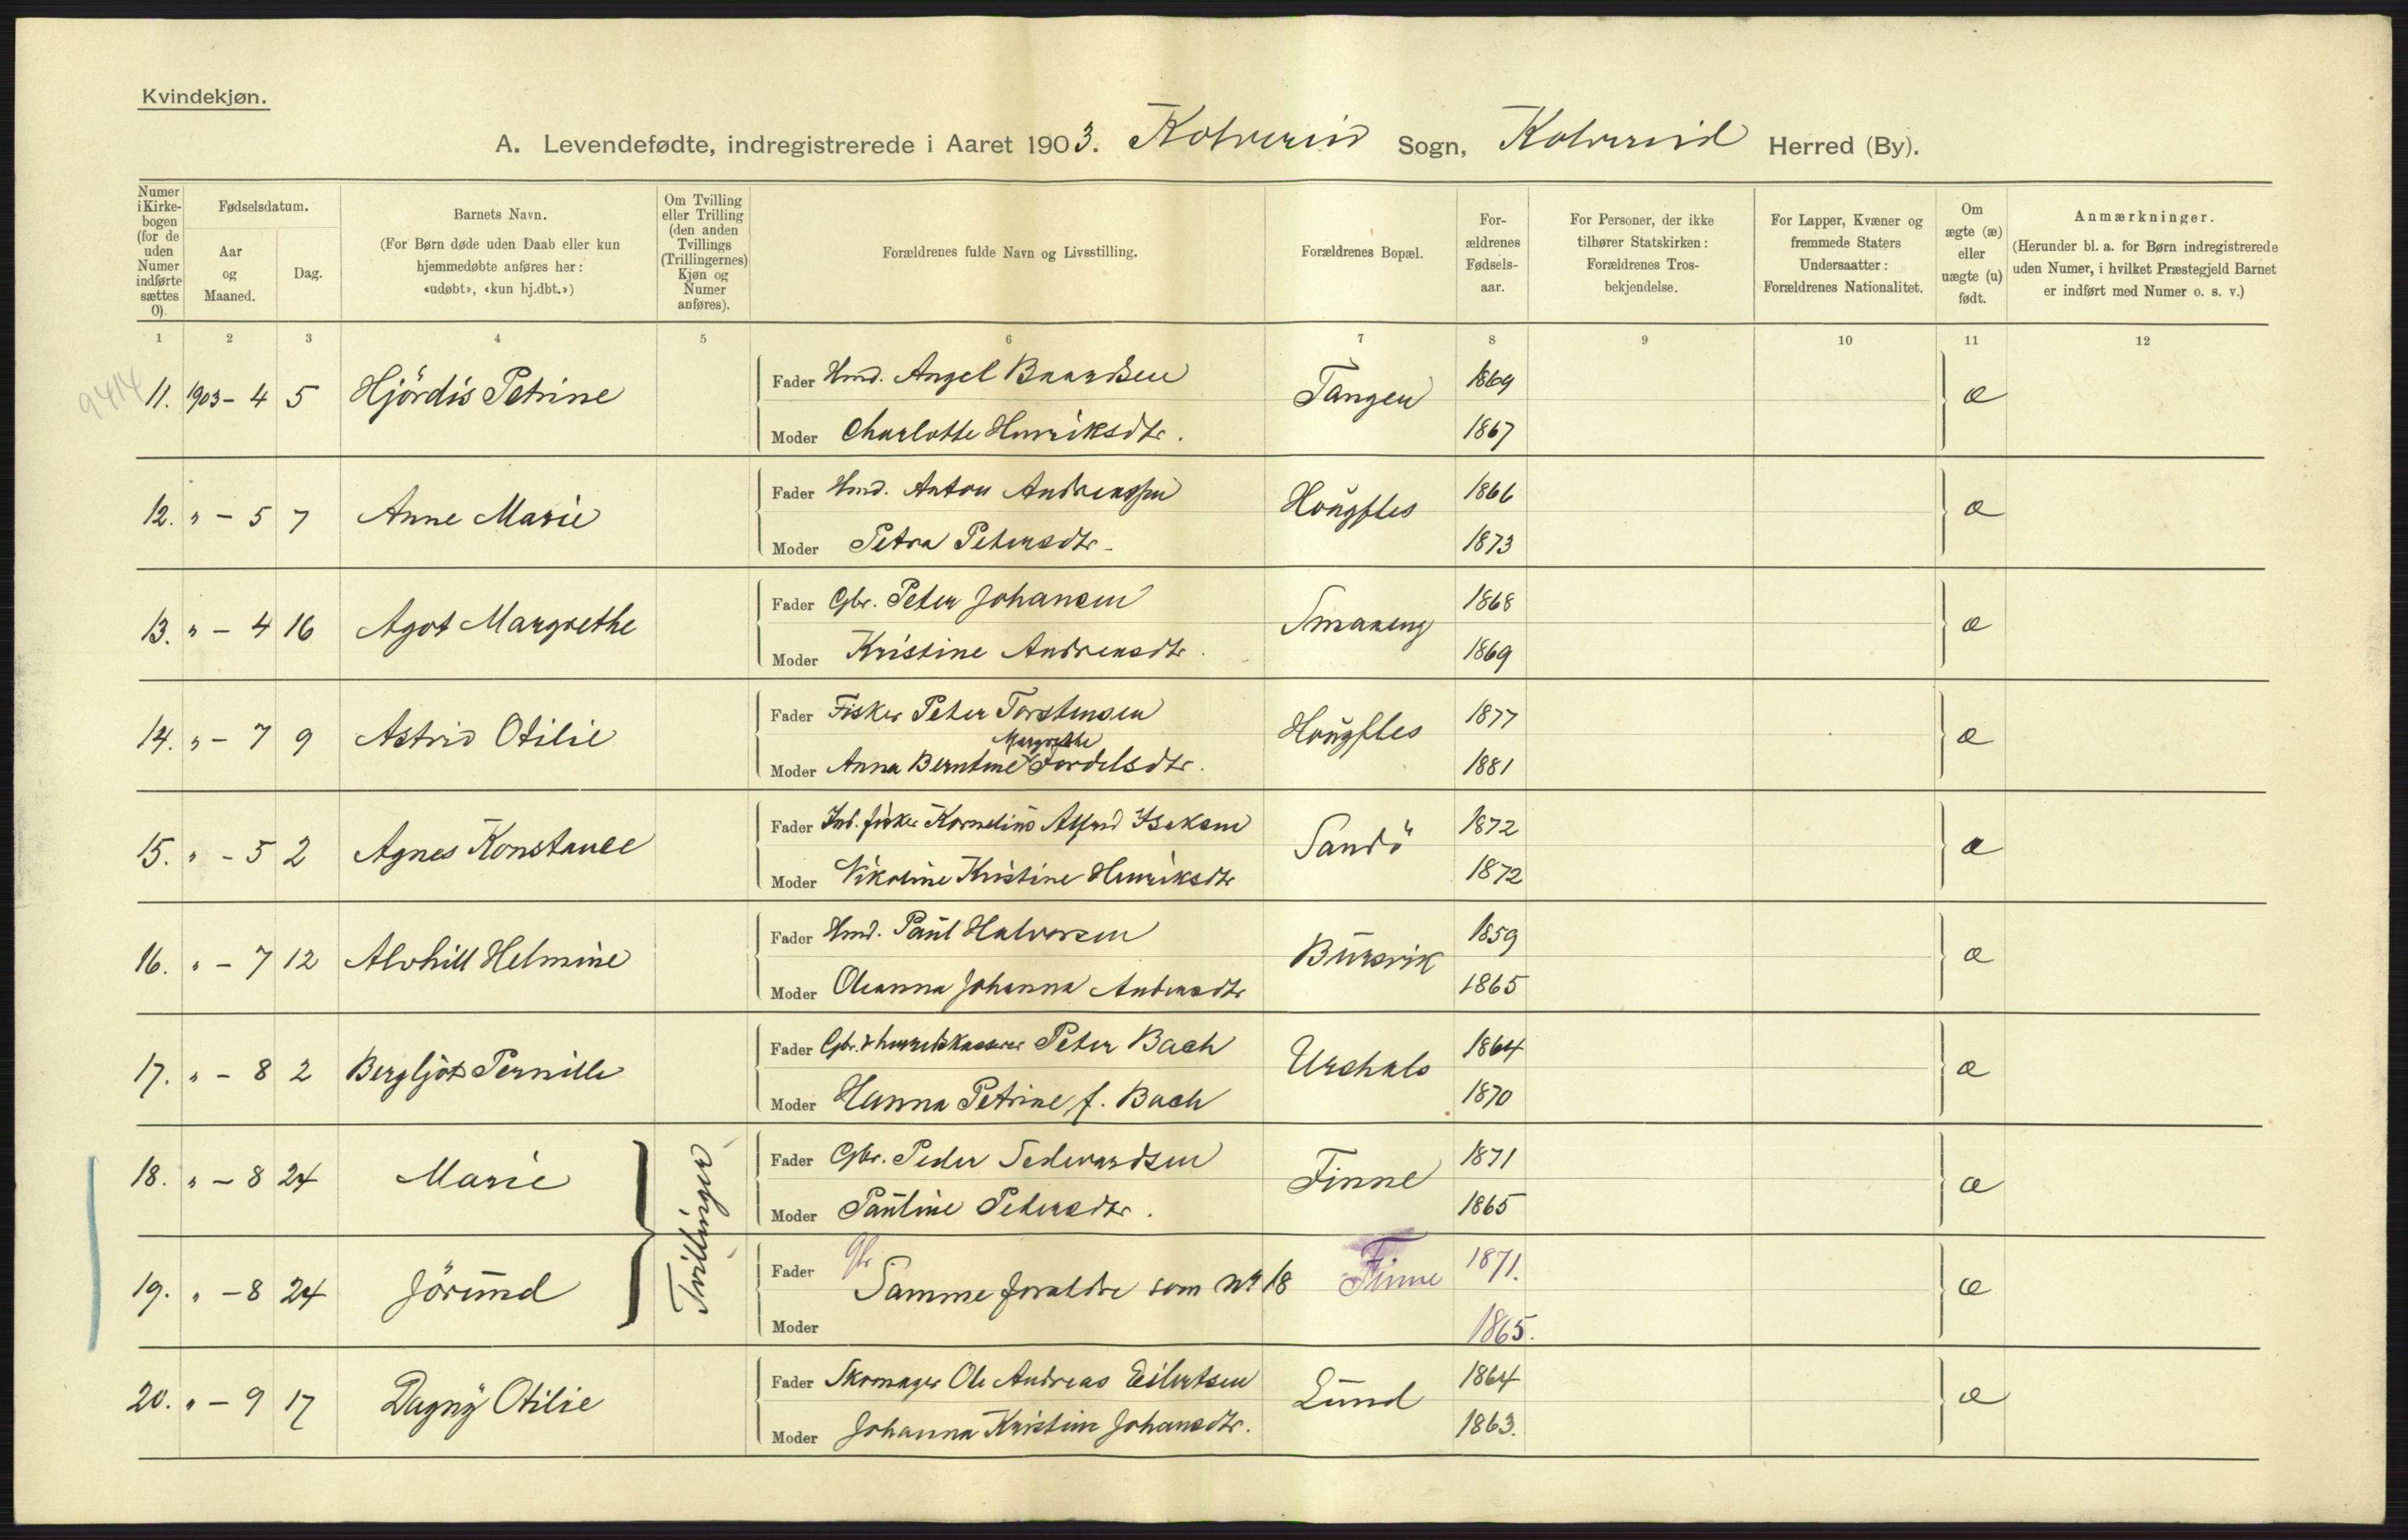 Kvindekjøn.
A. Levendefødte, indregistrerede i Aaret 1903. Kolvereid Sogn, Kolvereid Herred (By).
Numer i Kirkebogen (for de uden Numer indførte sættes 0).
Fødselsdatum.
Aar og Maaned.
Dag.
Barnets Navn.
(For Børn døde uden Daab eller kun hjemmedøbte anføres her: «udøbt», «kun hj.dbt.»)
Om Tvilling eller Trilling (den anden Tvillings (Trillingernes) Kjøn og Numer anføres).
Forældrenes fulde Navn og Livsstilling.
Forældrenes Bopæl.
Forældrenes Fødselsaar.
For Personer, der ikke tilhører Statskirken: Forældrenes Trosbekjendelse.
For Lapper, Kvæner og fremmede Staters Undersaatter: Forældrenes Nationalitet.
Om ægte (æ) eller uægte (u) født.
Anmærkninger.
(Herunder bl. a. for Børn indregistrerede uden Numer, i hvilket Præstegjeld Barnet er indført med Numer o. s. v.)
1 2 3 4 5 6 7 8 9 10 11 12
9414
11. 1903 - 4 5 Hjördis Petrine Fader Hmd. Angel Baardsen Tangen 1869 æ
Moder Charlotte Henriksdtr. 1867
12. " - 5 7 Anne Marie Fader Hmd. Anton Andreassen Hougfles 1866 æ
Moder Petra Petersdtr. 1873
13. " - 4 16 Agot Margrethe Fader Gbr. Peter Johansen Smaaeng 1868 æ
Moder Kristine Andreasdtr. 1869
14. " - 7 9 Astrid Otilie Fader Fisker Peter Torstensen Hougfles 1877 æ
Margrethe
Moder Anna Berntine Fordelsdtr. 1881
15. " - 5 2 Agnes Konstance Fader Ind. fisker Kornelius Alfred Isaksen Sandö 1872 æ
Moder Nikoline Kristine Henriksdtr 1872
16. " - 7 12 Alvhill Helmine Fader Hmd. Paul Halvorsen Bursvik 1859 æ
Moder Oleanna Johanna Andreasdtr 1865
17. " - 8 2 Bergljot Pernille Fader Gbr. & herredskasserer Peter Bach Urshals 1864 æ
Moder Hanna Petrine f. Bach 1870
18. " - 8 24 Marie Tvillinger Fader Gbr. Peder Sedevardsen Finne 1871 æ
Moder Pauline Petersdtr. 1865
19. " - 8 24 Jörund Fader Gbr Samme foraldre som No 18 Finne 1871. æ
Moder 1865.
20. " - 9 17 Dagny Otilie Fader Skomager Ole Andreas Eilertsen Lund 1864 æ
Moder Johanna Kristine Johansdtr. 1863.